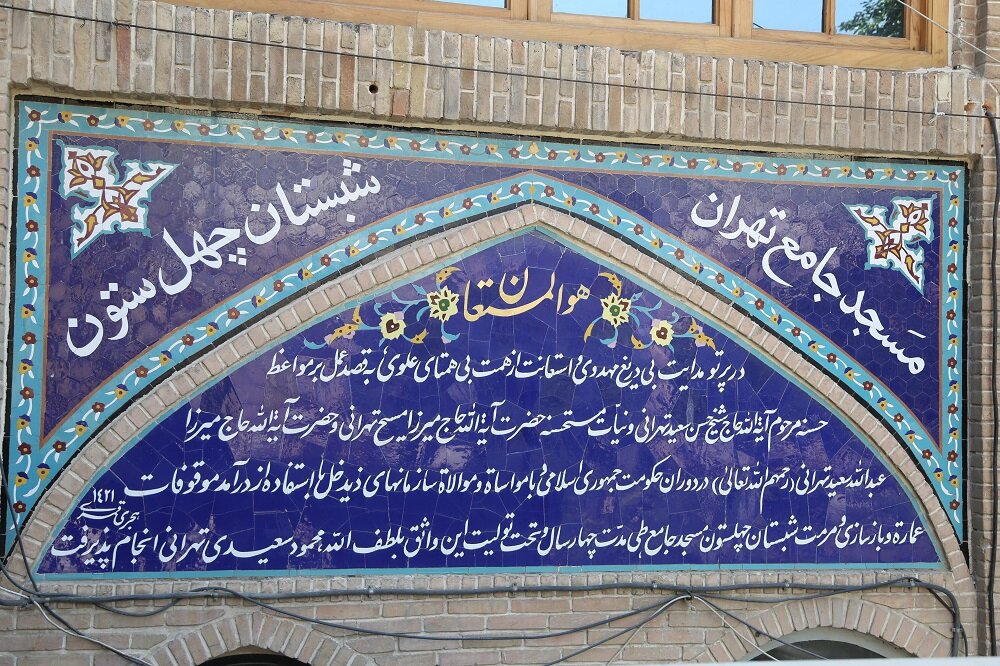 مسجد جامع تهران
شبستان چهل ستون
هوالمستعان
در پرتو هدایت بی دریغ مهدوی و استعانت از همت بی همتای علوی به قصد عمل بر مواعظ
حسنه مرحوم آیة الله حاج شیخ حسن سعید تهرانی و نیات مستحسنه حضرت آیة الله حاج میرزا مسیح تهرانی و حضرت آیة الله حاج میرزا
عبدالله سعید تهرانی (رحمهم الله تعالی) در دوران حکومت جمهوری اسلامی و با مواساة و موالاة سازمانهای ذیدخل با استفاده از درآمد موقوفات
عمارة و بازسازی و مرمت شبستان چهلستون مسجد جامع طی مدت چهار سال و تحت تولیت این واثق بلطف الله محمود سعیدی تهرانی انجام پذیرفت
هجری قمری ۱۴۲۱